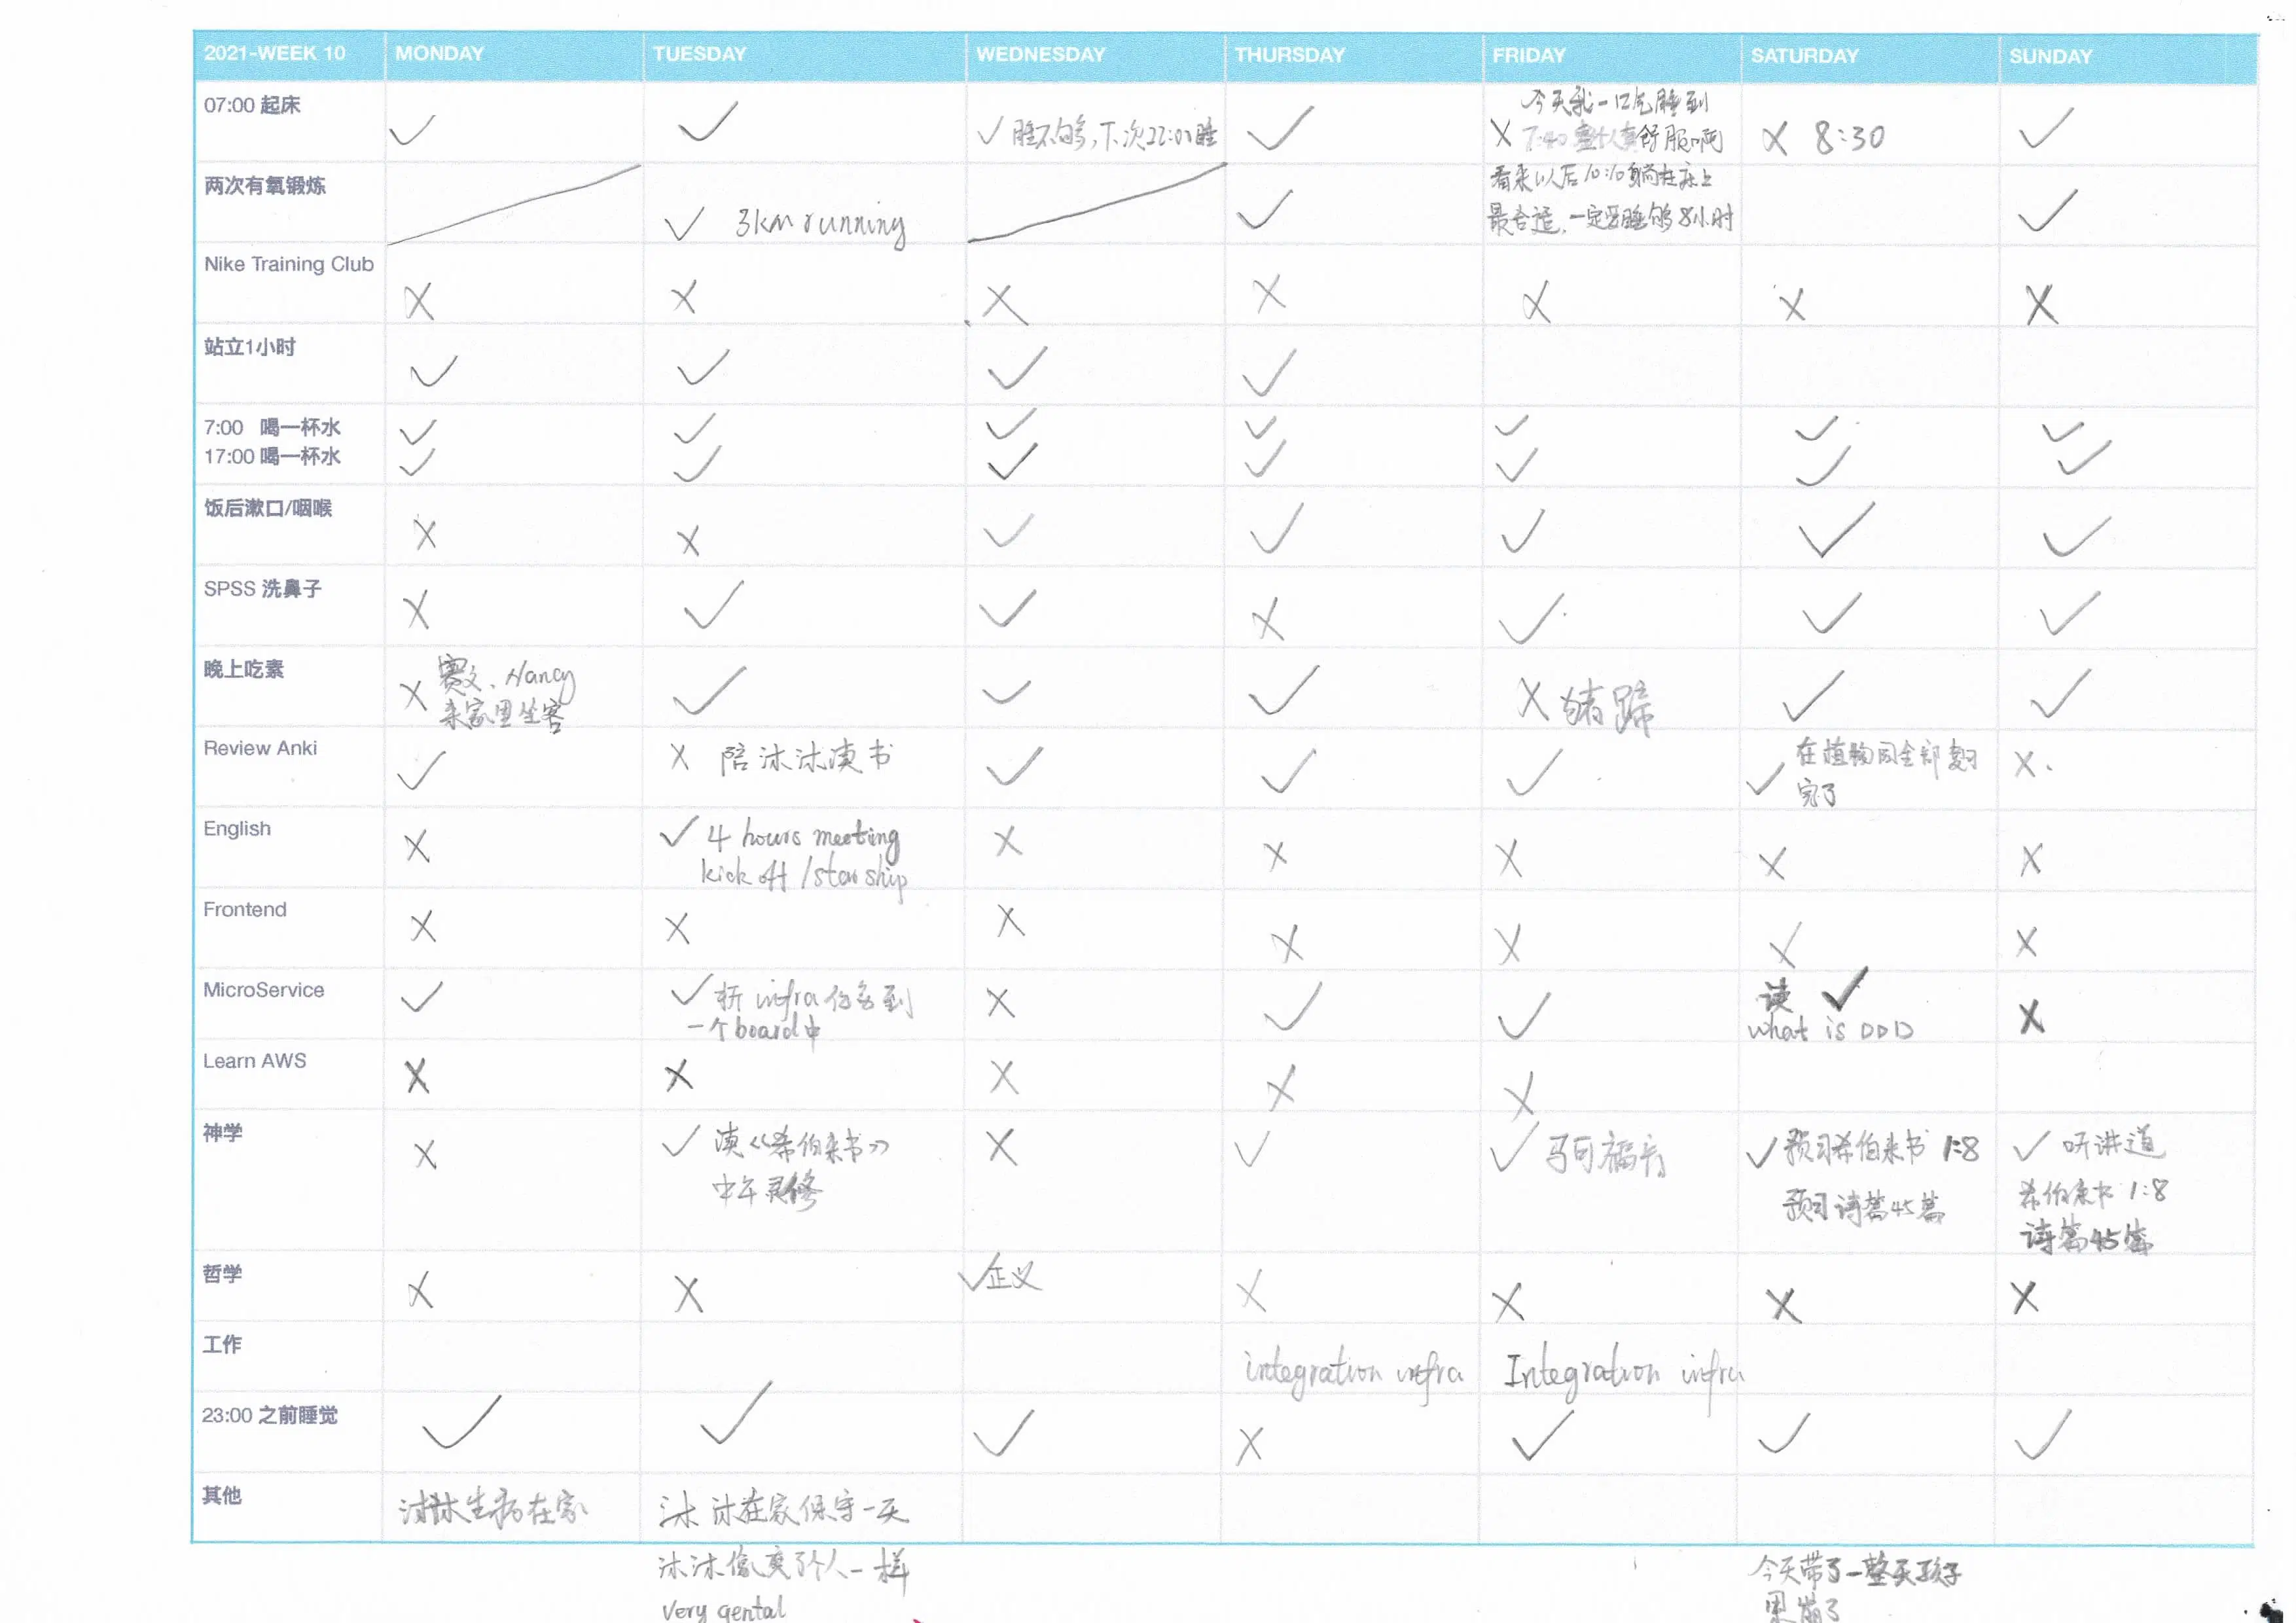 2021-WEEK 10 MONDAY TUESDAY WEDNESDAY THURSDAY FRIDAY SATURDAY SUNDAY
07:00 起床 ✓ ✓ ✓ 睡不够,下次22:00睡 ✓ 今天我一口气睡到
X 7:40 整个人真舒服啊 X 8:30 ✓
两次有氧锻炼 ✓ 3km running ✓ 看来以后10:10躺在床上
最合适,一定要睡够8小时 ✓
Nike Training Club X X X X X X X
站立1小时 ✓ ✓ ✓ ✓
7:00 喝一杯水 ✓ ✓ ✓ ✓ ✓ ✓ ✓
17:00 喝一杯水 ✓ ✓ ✓ ✓ ✓ ✓ ✓
饭后漱口/咽喉 X X ✓ ✓ ✓ ✓ ✓
SPSS 洗鼻子 X ✓ ✓ X ✓ ✓ ✓
晚上吃素 X 赛文、Nancy
来家里坐客 ✓ ✓ ✓ X 猪蹄 ✓ ✓
Review Anki ✓ X 陪沐沐读书 ✓ ✓ ✓ ✓ 在植物园全部复习
完了 X
English X ✓ 4 hours meeting
kick off / starship X X X X X
Frontend X X X X X X X
MicroService ✓ ✓ 拆 infra 任务到
一个board中 X ✓ ✓ 读 ✓
what is DDD X
Learn AWS X X X X X
神学 X ✓ 读《希伯来书》
中午灵修 X ✓ ✓ 马可福音 ✓ 预习希伯来书 1:8
预习诗篇45篇 ✓ 听讲道
希伯来书 1:8
诗篇45篇
哲学 X X ✓ 正义 X X X X
工作 integration infra Integration infra
23:00 之前睡觉 ✓ ✓ ✓ X ✓ ✓ ✓
其他 沐沐生病在家 沐沐在家保守一天
沐沐像变了个人一样
very gental
今天带了一整天孩子
累崩了